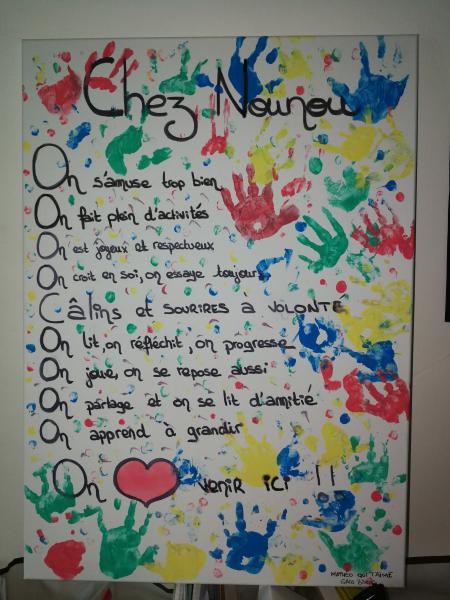 Chez Nounou
On s'amuse trop bien
On fait plein d'activités
On est joyeux et respectueux
On croit en soi, on essaye toujours
Câlins et SOURIRES À VOLONTÉ
On lit, on réfléchit, on progresse
On joue, on se repose aussi
On partage et on se lit d'amitié
On apprend à grandir
On venir ici !!